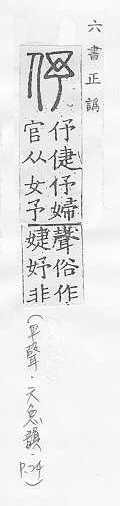 六書正譌
伃
伃倢伃婦
官从女予
聲俗作
婕妤非
(平聲·六魚韻·P.24)